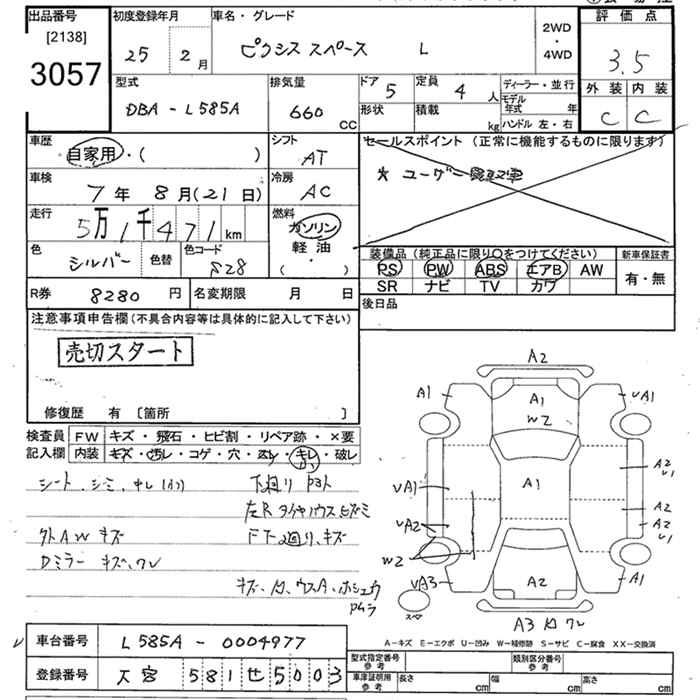 出品番号
[2138]
3057
初度登録年月
25 2月
車名・グレード
ピクシス スペース L
2WD
・
4WD
評価点
3.5
外装 内装
C C
型式
DBA-L585A
排気量
660 CC
ドア 5
形状
定員 4 人
積載 kg
ディーラー・並行
モデル年式 年
ハンドル 左・右
車歴
自家用・( )
シフト
AT
セールスポイント (正常に機能するものに限ります)
★ ユーザー
車検
7年 8月(21日)
冷房
AC
走行
5万1千471km
燃料
ガソリン
軽油
(・)
色
シルバー
色替
色コード
S28
装備品 (純正品に限り○をつけてください)
PS PW ABS エアB AW
SR ナビ TV カワ
新車保証書
有・無
R券 8280円
名変期限 月 日
後日品
注意事項申告欄(不具合内容等は具体的に記入して下さい)
売切スタート
修復歴 有 [箇所 ]
検査員記入欄
FW キズ・飛石・ヒビ割・リペア跡・×要
内装 キズ・汚レ・コゲ・穴・スレ・キレ・破レ
シート、シミ、
下廻り サビ
左R タイヤハウス ヒズミ
外AW キズ
FT廻り、キズ
Dミラー キズ、ワレ
A2
A1
W2
A1
UA1
A1
UA1
A2
U1
UA2
A2
A2
U1
W2
UA3
A2
A1
スペア
A3 凹 ワレ
A-キズ E-エクボ U-凹み W-補修跡 S-サビ C-腐食 XX-交換済
車台番号 L585A-0004977
登録番号 大宮 581 せ 5003
型式指定番号 参考
類別区分番号 参考
車庫証明用 参考
長さ cm
幅 cm
高さ cm